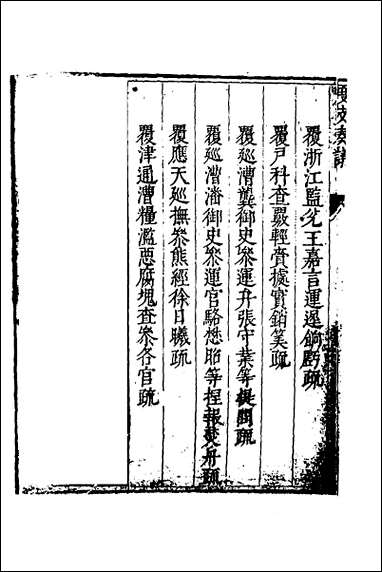 覆浙江監兌王嘉言運遲餉虧疏
覆戶科查覈輕賫據實銷筭疏
覆廵漕龔御史叅運弁張守葉等提問疏
覆廵漕潘御史叅運官駱懋昭等捏報焚舟疏
覆應天廵撫叅熊經徐日曦疏
覆津通漕糧濫惡腐塊查叅各官疏